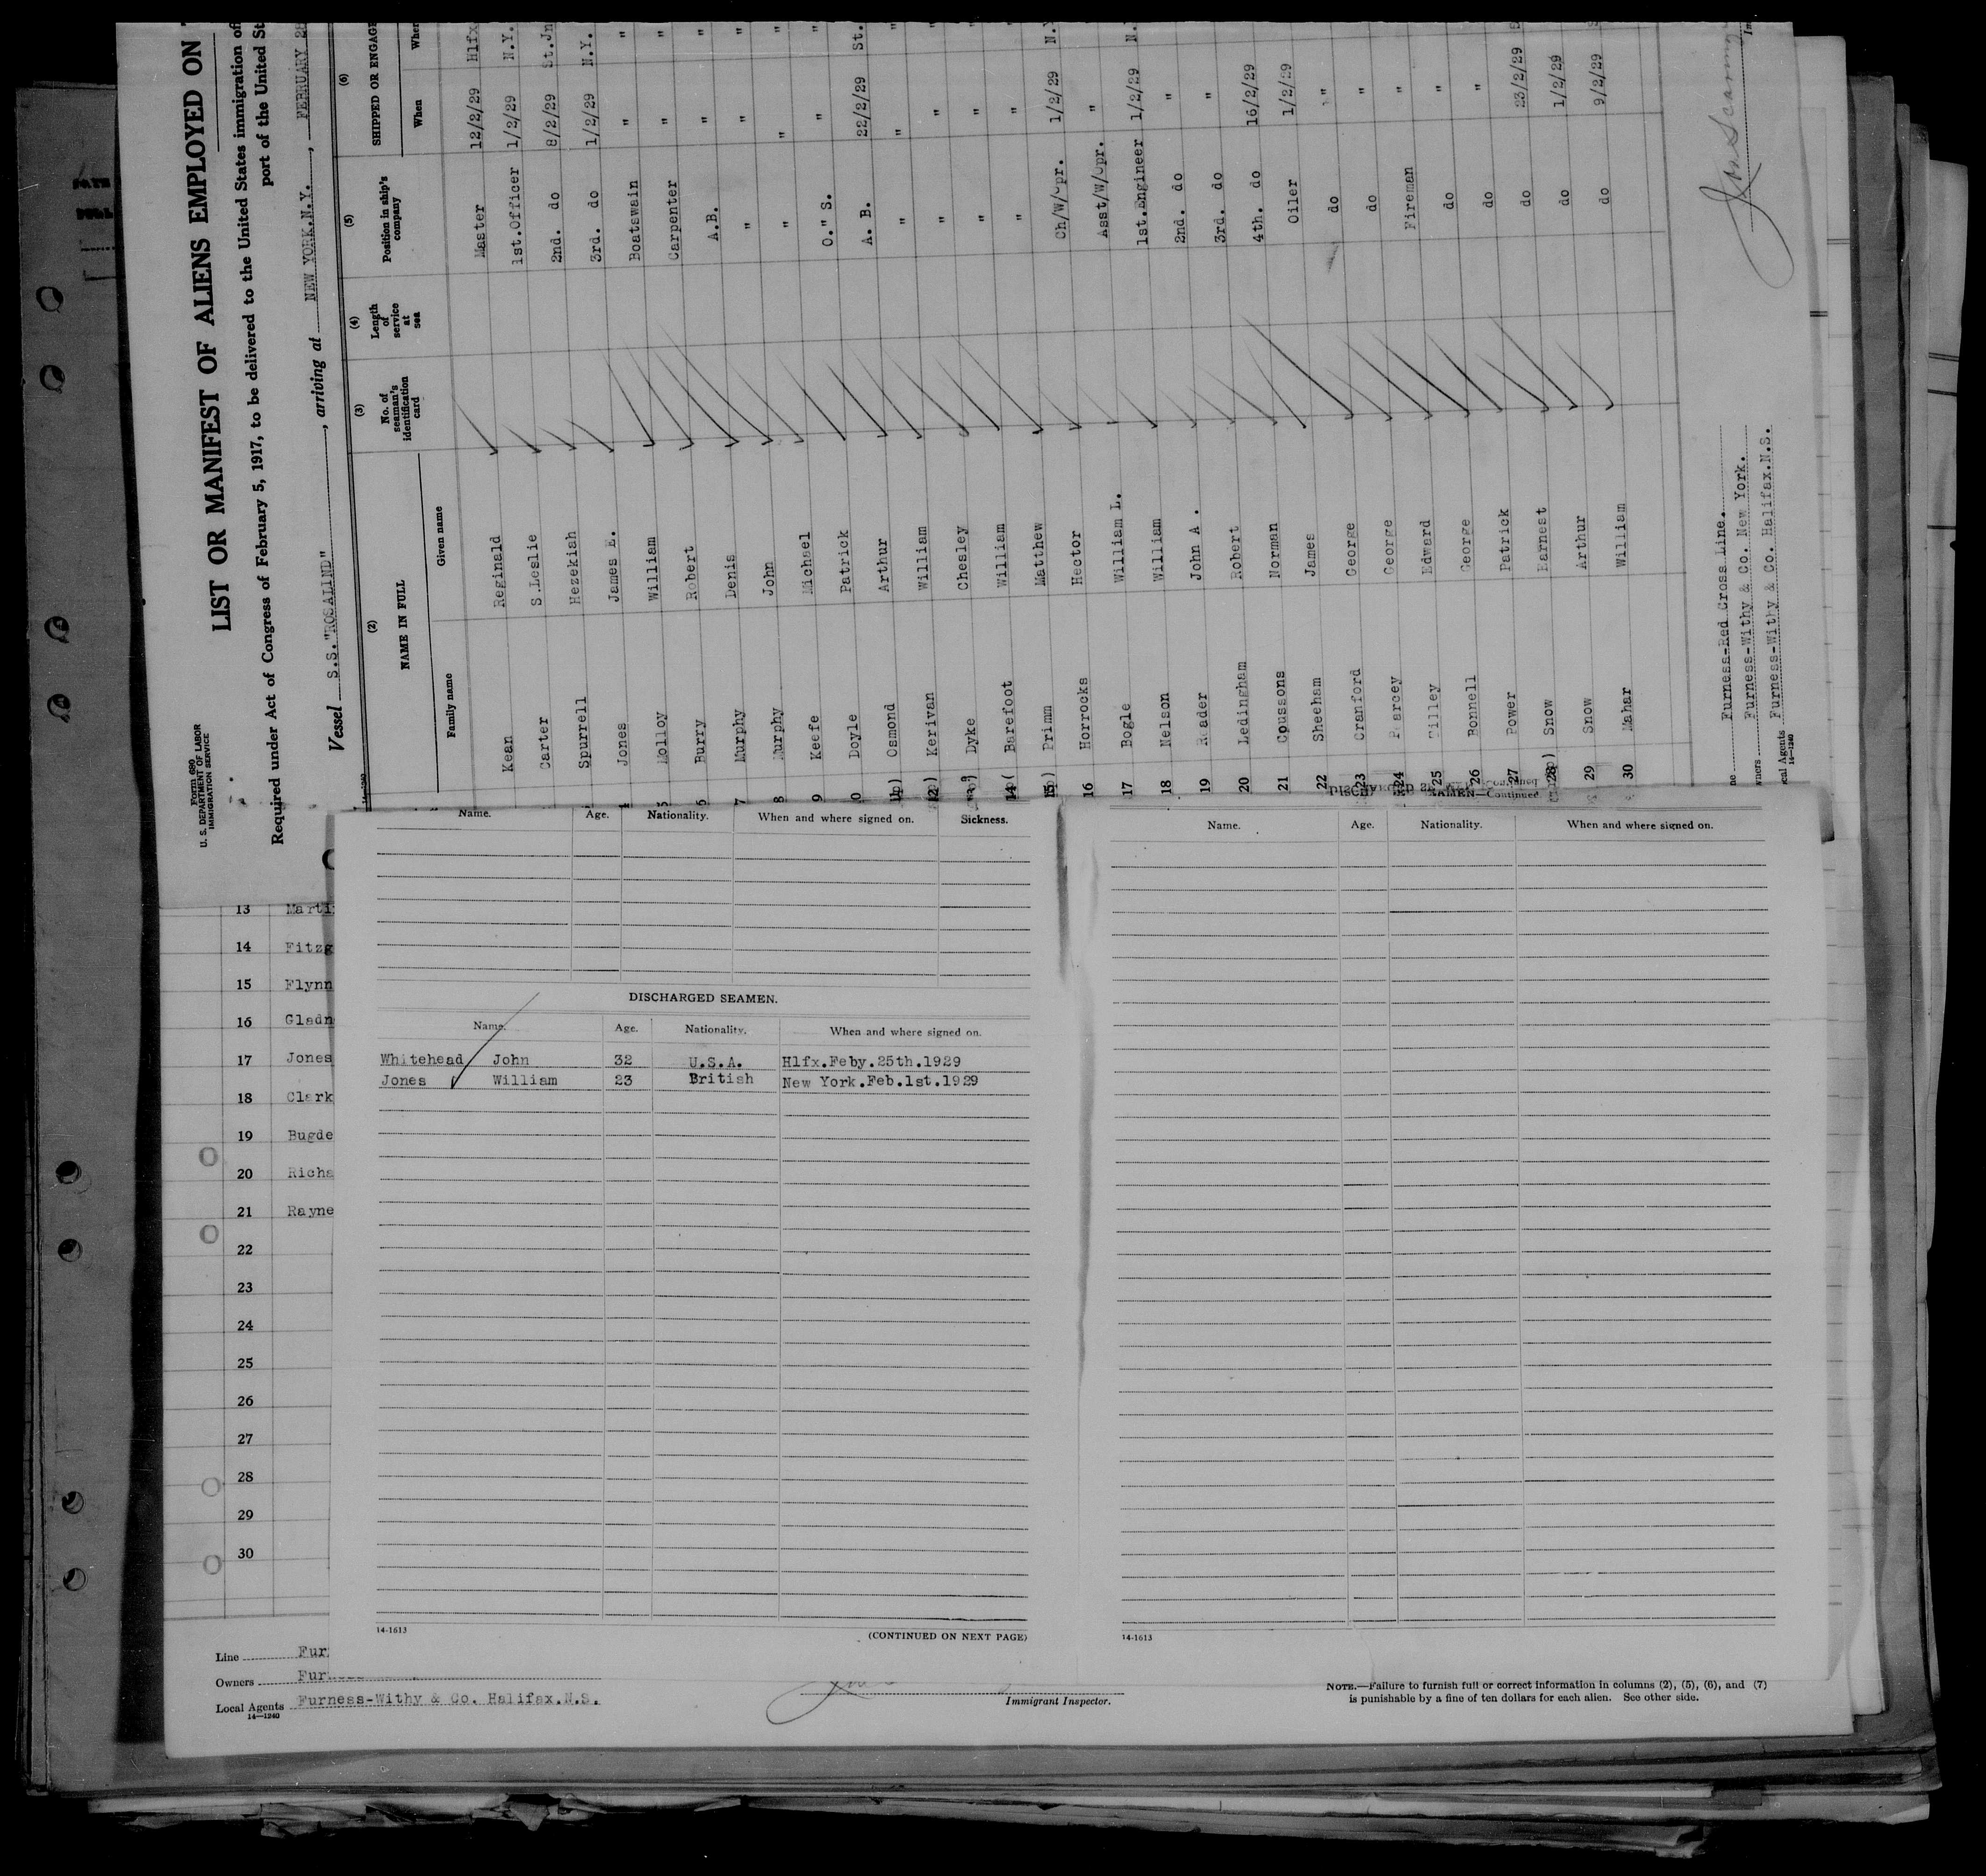 Form 680
U. S. DEPARTMENT OF LABOR
IMMIGRATION SERVICE
LIST OR MANIFEST OF ALIENS EMPLOYED ON
Required under Act of Congress of February 5, 1917, to be delivered to the United States immigration
port of the United
Vessel S.S."ROSALIND", arriving at NEW YORK.N.Y., FEBRUARY
(2) (3) (4) (5) (6)
NAME IN FULL No. of seaman's identification card Length of service at sea Position in ship's company SHIPPED OR ENGAGE
Family name Given name When
Kean Reginald Master 12/2/29 Hlfx
Carter S.Leslie 1st.Officer 1/2/29 N.Y.
Spurrell Hezekiah 2nd. do 8/2/29 St.Jn
Jones James E. 3rd. do 1/2/29 N.Y.
5 Molloy William Boatswain " "
6 Burry Robert Carpenter " "
7 Murphy Denis A.B. " "
8 Murphy John " " "
9 Keefe Michael " " "
0 Doyle Patrick O." S. " "
11 Osmond Arthur A. B. 22/2/29 St.
12 Kerrivan William " " "
Dyke Chesley " " "
14 Barefoot William " " "
15 Primm Matthew " " "
16 Horrocks Hector Ch/W/Opr. 1/2/29 N.Y
17 Bogle William L. Asst/W/Opr. "
18 Nelson William 1st.Engineer 1/2/29 N.
19 Reader John A. 2nd. do "
20 Ledingham Robert 3rd. do "
21 Coussons Norman 4th. do 16/2/29
22 Sheeham James Oiler 1/2/29
23 Cranford George do "
24 Piercey George do "
25 Tilley Edward Fireman "
26 Bonnell George do "
27 Power Patrick do "
28 Snow Earnest do 23/2/29
29 Snow Arthur do 1/2/29
30 Mahar William do 9/2/29
Furness-Red Cross Line.
Furness-Withy & Co. New York.
Furness-Withy & Co. Halifax.N.S.
14-1240
Name. Age. Nationality. When and where signed on. Sickness.
DISCHARGED SEAMEN.
Name. Age. Nationality. When and where signed on.
Whitehead John 32 U.S.A. Hlfx.Feby.25th.1929
Jones William 23 British New York.Feb.1st.1929
14-1613
(CONTINUED ON NEXT PAGE)
SEAMEN—Continued
Name. Age. Nationality. When and where signed on.
14-1613
13 Marti
14 Fitzg
15 Flynn
16 Gladn
17 Jones
18 Clark
19 Bugde
20 Richa
21 Rayne
22
23
24
25
26
27
28
29
30
Line Fur
Owners Fur
Local Agents Furness-Withy & Co. Halifax.N.S.
14—1240
Immigrant Inspector.
NOTE.—Failure to furnish full or correct information in columns (2), (5), (6), and (7)
is punishable by a fine of ten dollars for each alien. See other side.